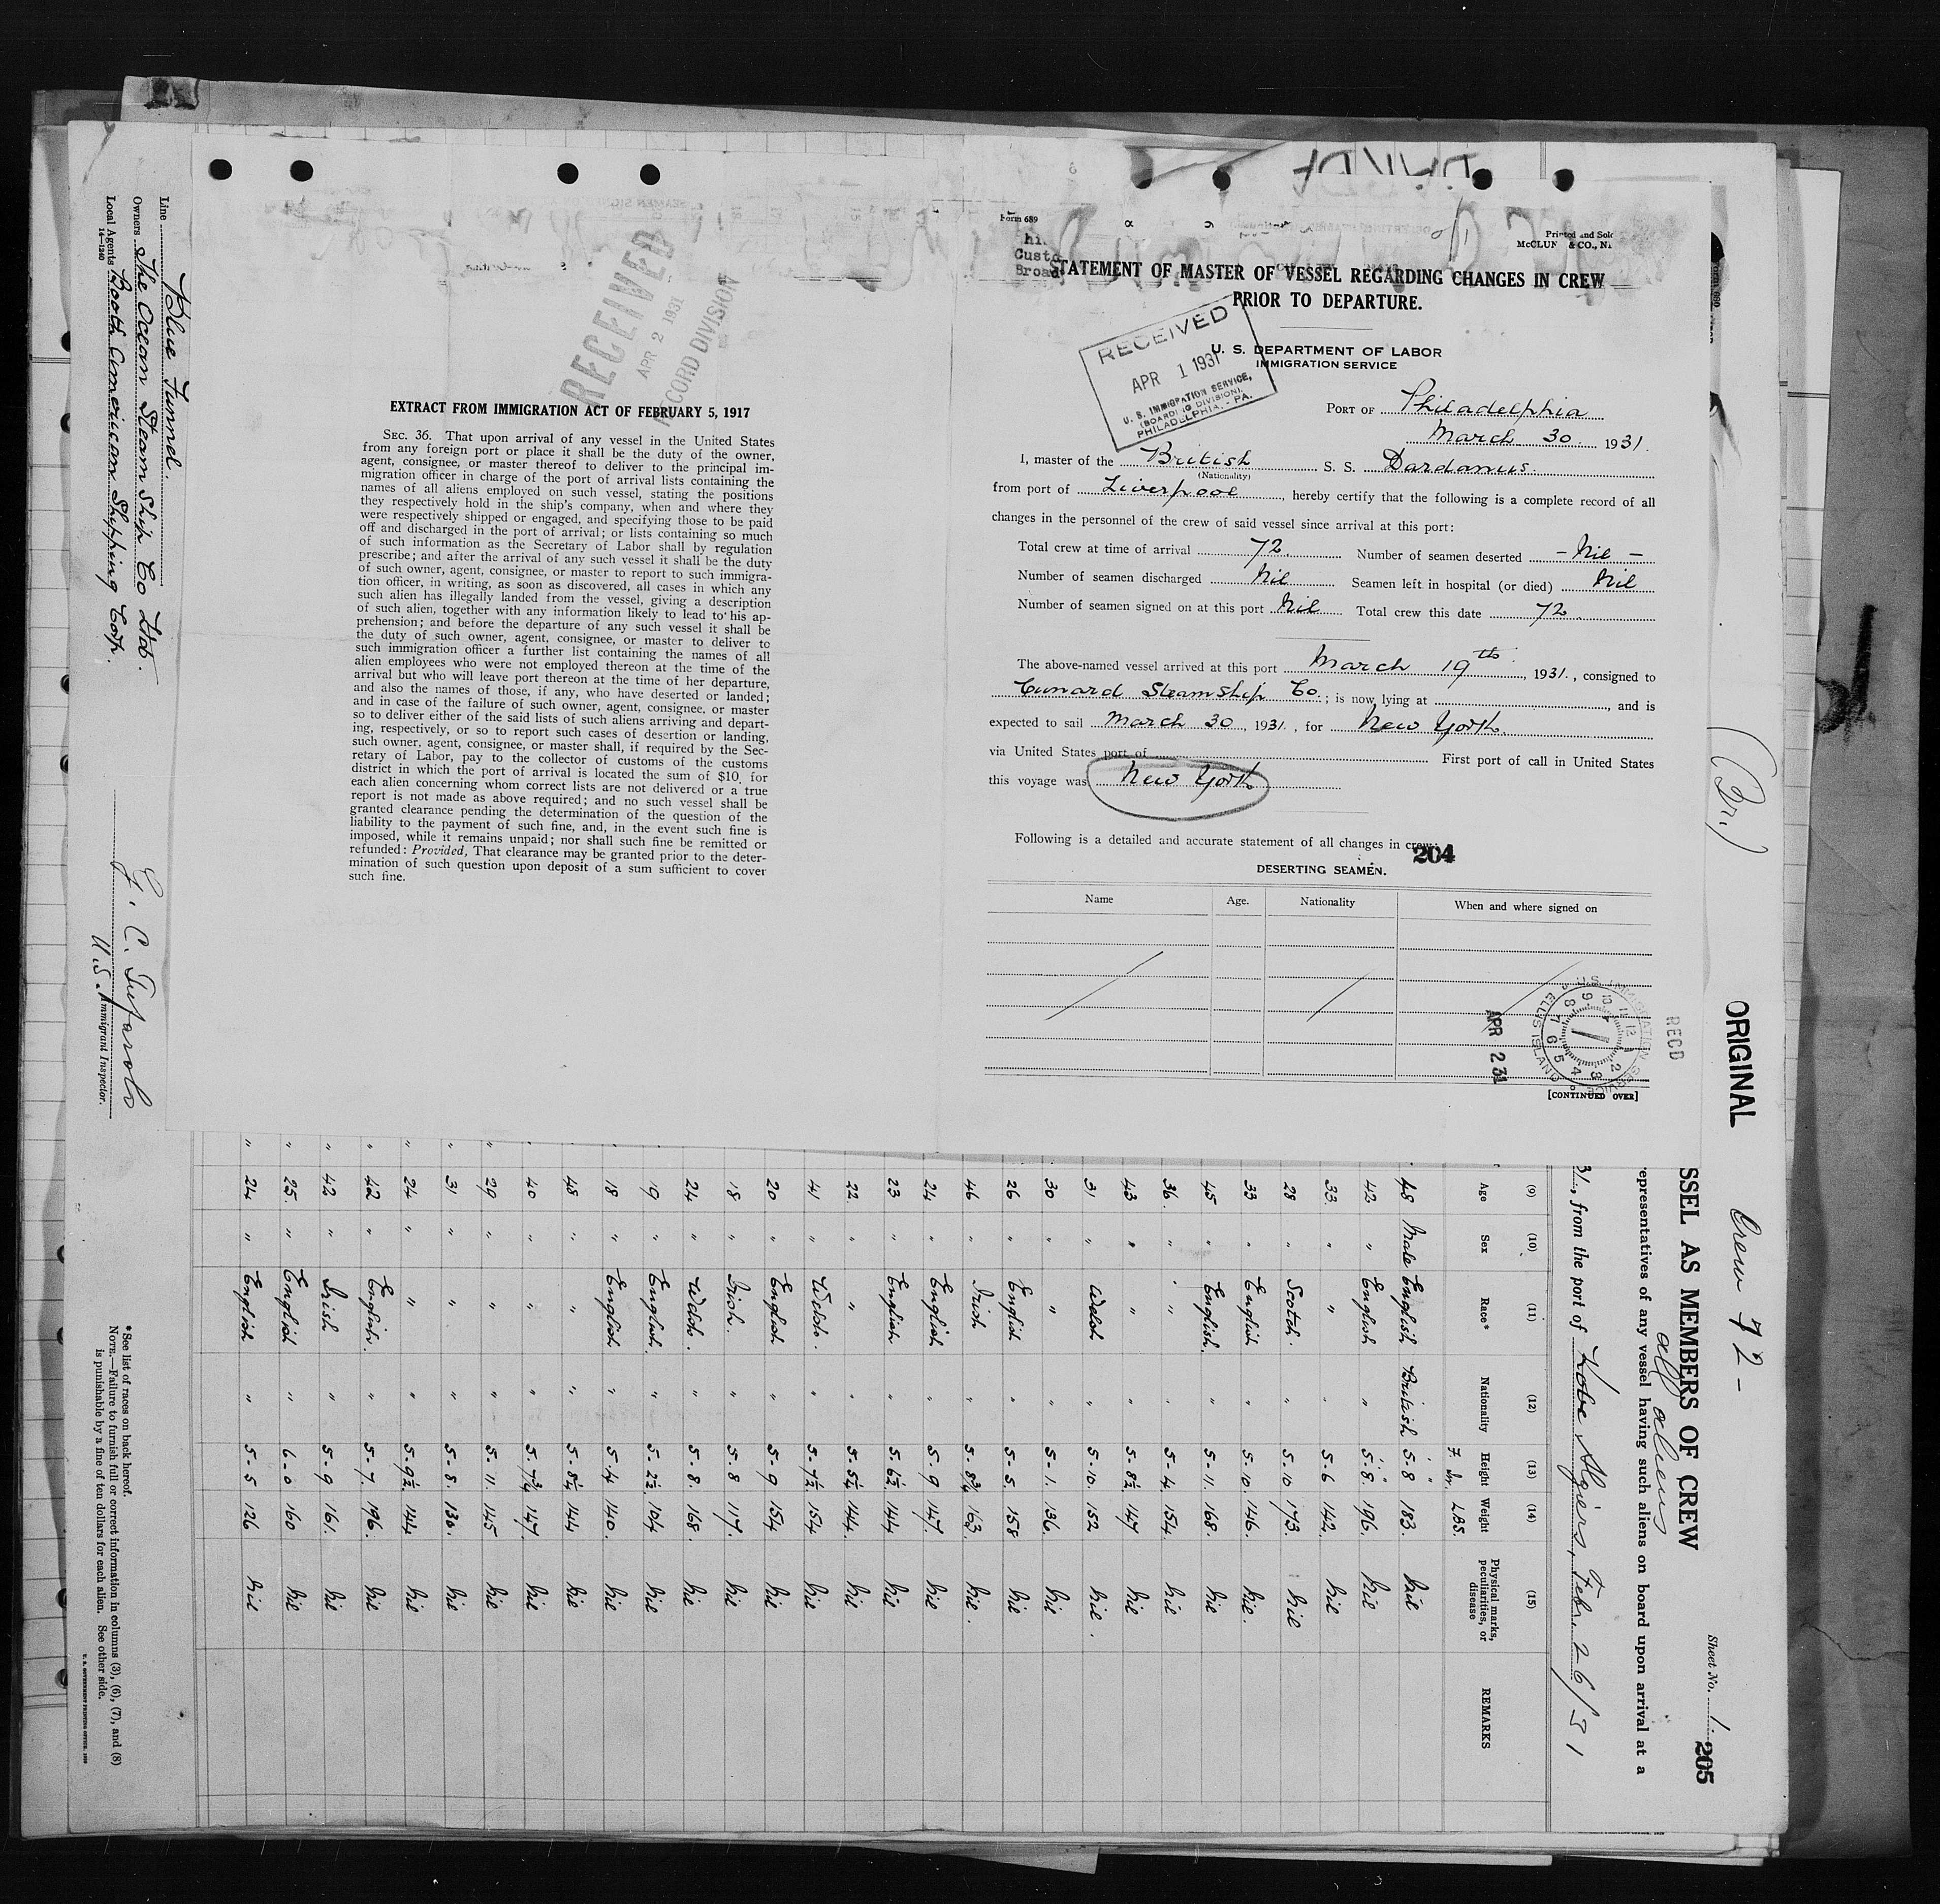 Form 689
Printed and Sold
McCLUN & CO., N
Custo
Broad
STATEMENT OF MASTER OF VESSEL REGARDING CHANGES IN CREW
PRIOR TO DEPARTURE.
U. S. DEPARTMENT OF LABOR
IMMIGRATION SERVICE
RECEIVED
APR 1 1931
U. S. IMMIGRATION SERVICE,
(BOARDING DIVISION),
PHILADELPHIA, - PA.
PORT OF Philadelphia
March 30 1931.
I, master of the British S. S. Dardanus.
(Nationality)
from port of Liverpool, hereby certify that the following is a complete record of all
changes in the personnel of the crew of said vessel since arrival at this port:
Total crew at time of arrival 72. Number of seamen deserted - Nil -
Number of seamen discharged Nil Seamen left in hospital (or died) Nil
Number of seamen signed on at this port Nil Total crew this date 72.
The above-named vessel arrived at this port March 19th, 1931., consigned to
Cunard Steamship Co.; is now lying at , and is
expected to sail March 30, 1931., for New York.
via United States port of First port of call in United States
this voyage was New York
Following is a detailed and accurate statement of all changes in crew:
204
DESERTING SEAMEN.
Name Age. Nationality When and where signed on
APR 2 31
U. S. IMMIGRATION SERVICE
ELLIS ISLAND
RECD
[CONTINUED OVER]
RECEIVED
APR 2 1931
RECORD DIVISION
EXTRACT FROM IMMIGRATION ACT OF FEBRUARY 5, 1917
SEC. 36. That upon arrival of any vessel in the United States
from any foreign port or place it shall be the duty of the owner,
agent, consignee, or master thereof to deliver to the principal im-
migration officer in charge of the port of arrival lists containing the
names of all aliens employed on such vessel, stating the positions
they respectively hold in the ship's company, when and where they
were respectively shipped or engaged, and specifying those to be paid
off and discharged in the port of arrival; or lists containing so much
of such information as the Secretary of Labor shall by regulation
prescribe; and after the arrival of any such vessel it shall be the duty
of such owner, agent, consignee, or master to report to such immigra-
tion officer, in writing, as soon as discovered, all cases in which any
such alien has illegally landed from the vessel, giving a description
of such alien, together with any information likely to lead to his ap-
prehension; and before the departure of any such vessel it shall be
the duty of such owner, agent, consignee, or master to deliver to
such immigration officer a further list containing the names of all
alien employees who were not employed thereon at the time of the
arrival but who will leave port thereon at the time of her departure,
and also the names of those, if any, who have deserted or landed;
and in case of the failure of such owner, agent, consignee, or master
so to deliver either of the said lists of such aliens arriving and depart-
ing, respectively, or so to report such cases of desertion or landing,
such owner, agent, consignee, or master shall, if required by the Sec-
retary of Labor, pay to the collector of customs of the customs
district in which the port of arrival is located the sum of $10 for
each alien concerning whom correct lists are not delivered or a true
report is not made as above required; and no such vessel shall be
granted clearance pending the determination of the question of the
liability to the payment of such fine, and, in the event such fine is
imposed, while it remains unpaid; nor shall such fine be remitted or
refunded: Provided, That clearance may be granted prior to the deter-
mination of such question upon deposit of a sum sufficient to cover
such fine.
(Br.)
ORIGINAL
Crew 72 -
Sheet No. 1
205
SSEL AS MEMBERS OF CREW
all aliens
epresentatives of any vessel having such aliens on board upon arrival at a
31., from the port of Kobe Algiers, Feb. 26/31
(9) (10) (11) (12) (13) (14) (15)
Age Sex Race* Nationality Height Weight Physical marks, peculiarities, or disease REMARKS
F. In. LBS.
48 Male English British 5-8 183. Nil
42 " English " 5-8. 196. Nil
33. " " " 5-6 142. Nil
28 " Scotch. " 5-10 173. Nil
33 " English " 5-10. 146. Nil.
45 " English. " 5-11. 168. Nil
36. " " " 5-4 154. Nil
43 " " " 5-8½ 147 Nil
31 " Welsh " 5-10. 152 Nil.
30 " " " 5-1. 136. Nil
26 " English " 5-5. 158 Nil
46 " Irish " 5-8¾ 163. Nil.
24 " English " 5-9 147. Nil
23 " English " 5-6½ 144 Nil
22. " " " 5-5¼ 144. Nil
41 " Welsh. " 5-7½ 154 Nil
20 " English " 5-9 154 Nil
18 " Irish. " 5-8 117. Nil
24 " Welsh. " 5-8. 168. Nil
19 " English. " 5-2½ 104 Nil
18 " English " 5-4 140. Nil
48 " " " 5-8¼ 144 Nil
40 " " " 5-7¾ 147. Nil
29 " " " 5-11. 145 Nil
31 " " " 5-8. 130. Nil
24 " " " 5-9½ 144 Nil
42 " English. " 5-7. 196. Nil
42 " Irish " 5-9 161. Nil
25. " English " 6-0 160 Nil
24 " English " 5-5 126 Nil
Line Blue Funnel.
Owners The Ocean Steam Ship Co Ltd.
Local Agents Booth American Shipping Corp.
14-1240
U.S. Immigrant Inspector.
*See list of races on back hereof.
NOTE.—Failure to furnish full or correct information in columns (3), (6), (7), and (8)
is punishable by a fine of ten dollars for each alien. See other side.
U. S. GOVERNMENT PRINTING OFFICE